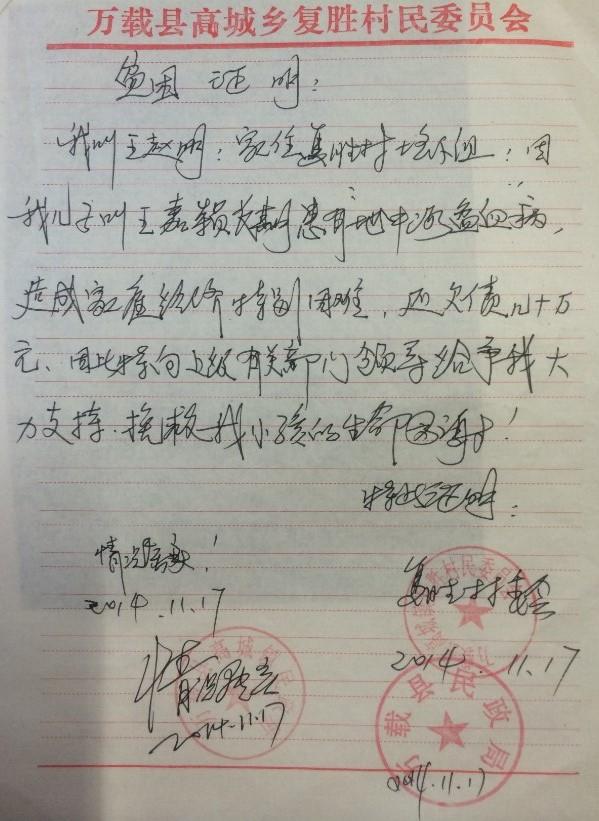 万载县高城乡复胜村民委员会
贫困证明:
我叫王赵明,家住复胜村 组,因
我儿子叫王嘉 长期患有地中海贫血病,
造成家庭经济特别困难,还欠债几十万
元、因此特向上级有关部门领导给予我大
力支持.挽救我小孩的生命 谢!
特此证明.
情况属实!
2014.11.17
复胜村委会
2014.11.17
情况属实
2014.11.17
高城
复胜村民委员会
万载县民政局
2014.11.17